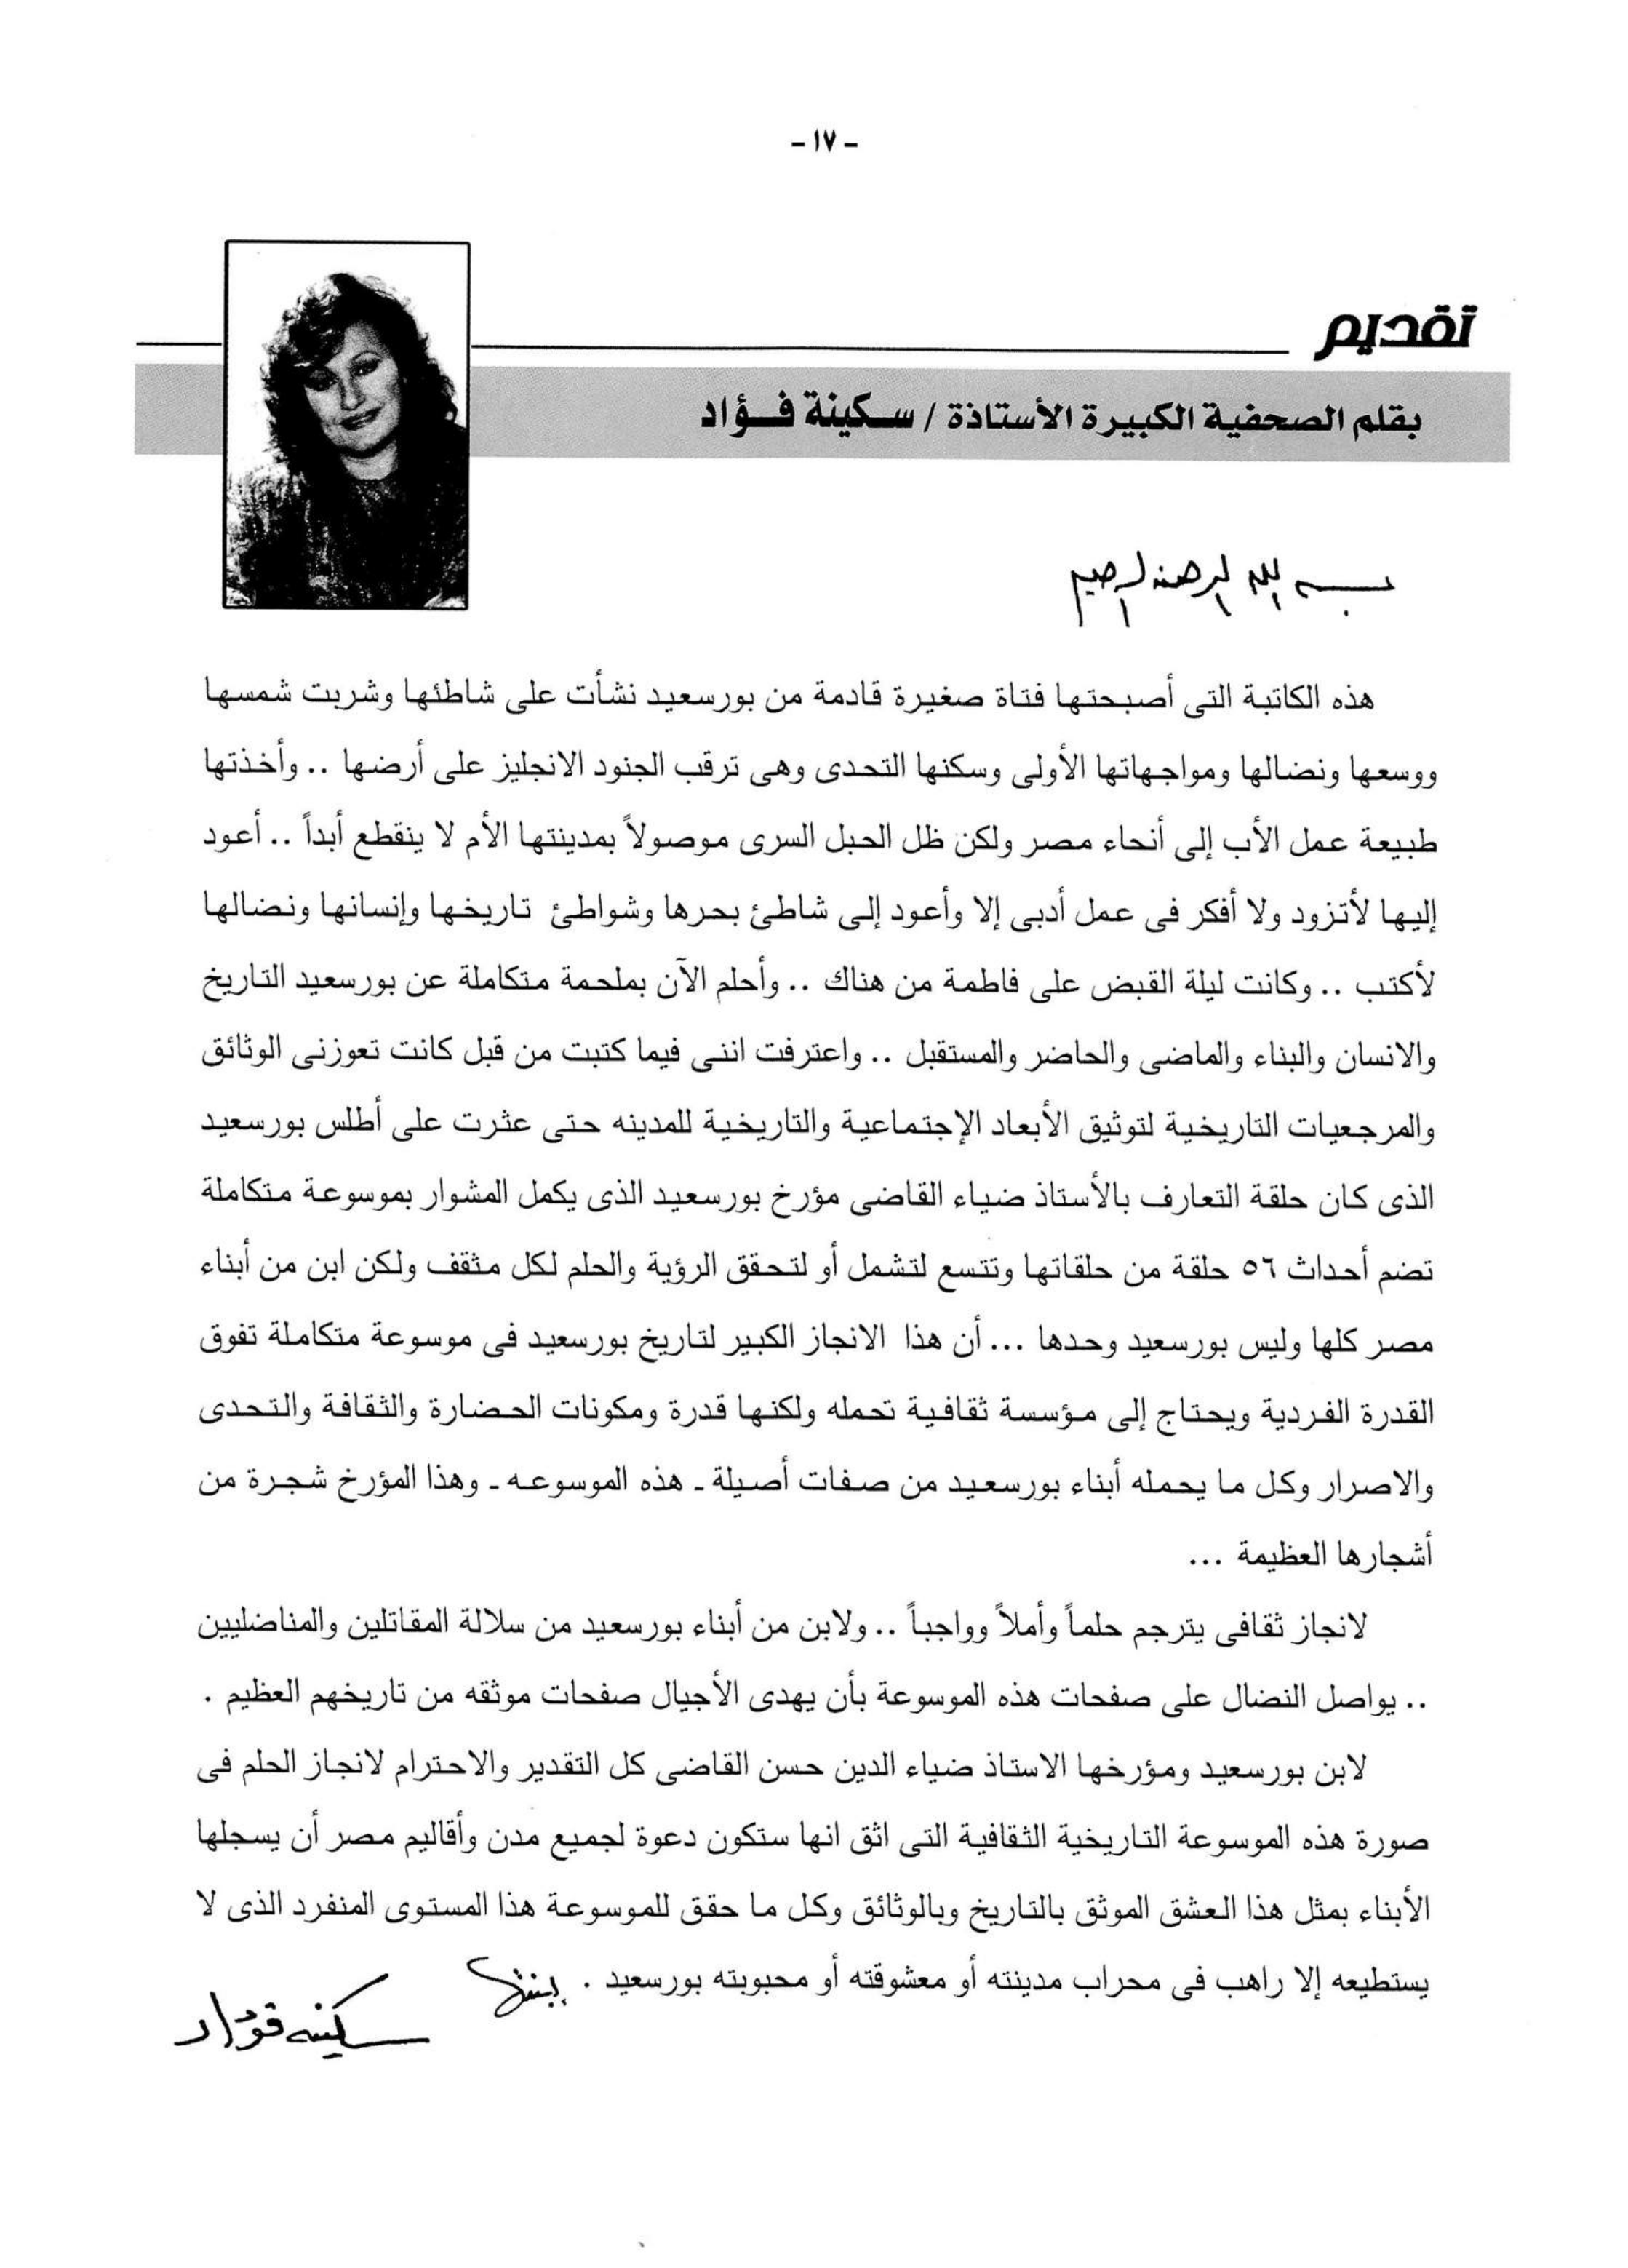 - ١٧ -
تقديم
بقلم الصحفية الكبيرة الأستاذة / سكينة فؤاد
بسم الله الرحمن الرحيم
هذه الكاتبة التى أصبحتها فتاة صغيرة قادمة من بورسعيد نشأت على شاطئها وشربت شمسها
ووسعها ونضالها ومواجهاتها الأولى وسكنها التحدى وهى ترقب الجنود الانجليز على أرضها .. وأخذتها
طبيعة عمل الأب إلى أنحاء مصر ولكن ظل الحبل السرى موصولاً بمدينتها الأم لا ينقطع أبداً .. أعود
إليها لأتزود ولا أفكر فى عمل أدبى إلا وأعود إلى شاطئ بحرها وشواطئ تاريخها وإنسانها ونضالها
لأكتب .. وكانت ليلة القبض على فاطمة من هناك .. وأحلم الآن بملحمة متكاملة عن بورسعيد التاريخ
والانسان والبناء والماضى والحاضر والمستقبل .. واعترفت اننى فيما كتبت من قبل كانت تعوزنى الوثائق
والمرجعيات التاريخية لتوثيق الأبعاد الإجتماعية والتاريخية للمدينه حتى عثرت على أطلس بورسعيد
الذى كان حلقة التعارف بالأستاذ ضياء القاضى مؤرخ بورسعيد الذى يكمل المشوار بموسوعة متكاملة
تضم أحداث ٥٦ حلقة من حلقاتها وتتسع لتشمل أو لتحقق الرؤية والحلم لكل مثقف ولكن ابن من أبناء
مصر كلها وليس بورسعيد وحدها ... أن هذا الانجاز الكبير لتاريخ بورسعيد فى موسوعة متكاملة تفوق
القدرة الفردية ويحتاج إلى مؤسسة ثقافية تحمله ولكنها قدرة ومكونات الحضارة والثقافة والتحدى
والاصرار وكل ما يحمله أبناء بورسعيد من صفات أصيلة ـ هذه الموسوعه ـ وهذا المؤرخ شجرة من
أشجارها العظيمة ...
لانجاز ثقافى يترجم حلماً وأملاً وواجباً .. ولابن من أبناء بورسعيد من سلالة المقاتلين والمناضليين
.. يواصل النضال على صفحات هذه الموسوعة بأن يهدى الأجيال صفحات موثقه من تاريخهم العظيم .
لابن بورسعيد ومؤرخها الاستاذ ضياء الدين حسن القاضى كل التقدير والاحترام لانجاز الحلم فى
صورة هذه الموسوعة التاريخية الثقافية التى اثق انها ستكون دعوة لجميع مدن وأقاليم مصر أن يسجلها
الأبناء بمثل هذا العشق الموثق بالتاريخ وبالوثائق وكل ما حقق للموسوعة هذا المستوى المنفرد الذى لا
يستطيعه إلا راهب فى محراب مدينته أو معشوقته أو محبوبته بورسعيد .
سكينه فؤاد